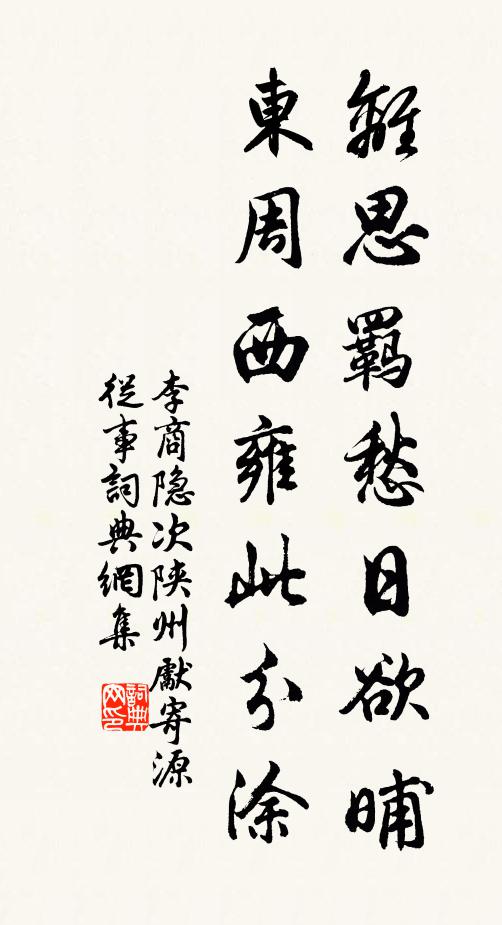 離思羈愁日欲晡
東周西雍此分涂
李商隐次陕州獻寄源
從事詞典網集
詞典网印